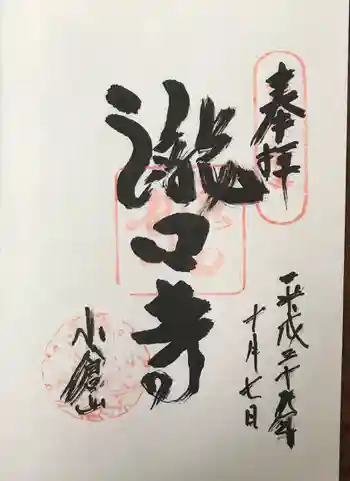 奉拝
平成二十九年
十月七日
瀧口寺
小倉山